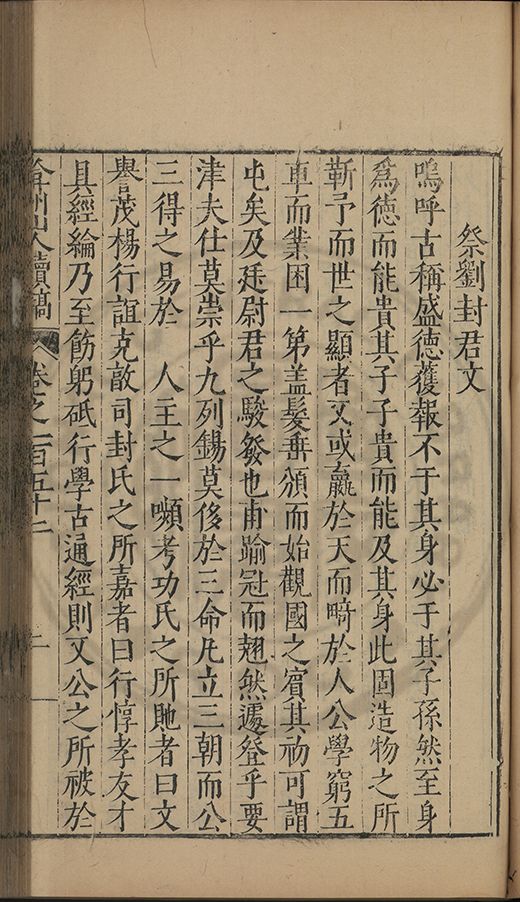 祭劉封君文
嗚呼古稱盛德獲報不于其身必于其子孫然至身
爲德而能貴其子子貴而能及其身此固造物之所
靳予而世之顯者又或羸於天而畸於人公學窮五
車而業困一第蓋髮垂頒而始觀國之賓其初可謂
屯矣及廷尉君之駿發也甫踰冠而翹然遽登乎要
津夫仕莫崇乎九列錫莫侈於三命凡立三朝而公
三得之易於　人主之一嚬考功氏之所貤者曰文
譽茂楊行誼克敵司封氏之所嘉者曰行惇孝友才
具經綸乃至飭躬砥行學古通經則又公之所被於
弇州山人續稿 卷之一百五十二 二